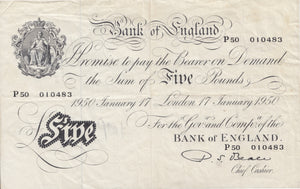 Bank of England
P50 010483
I Promise to pay the Bearer on Demand
the Sum of Five Pounds
1950 January 17 London 17 January 1950
For the Govr and Compa of the
P50 010483
BANK OF ENGLAND.
Five
P. S. Beale
Chief Cashier.